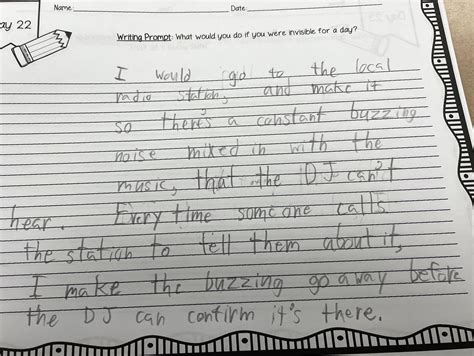 Name
Date
ay 22
Writing Prompt: What would you do if you were invisible for a day?
I would go to the local
radio station, and make it
so there's a constant buzzing
noise mixed in with the
music, that the DJ can't
hear. Every time someone calls
the station to tell them about it,
I make the buzzing go away before
the DJ can confirm it's there.